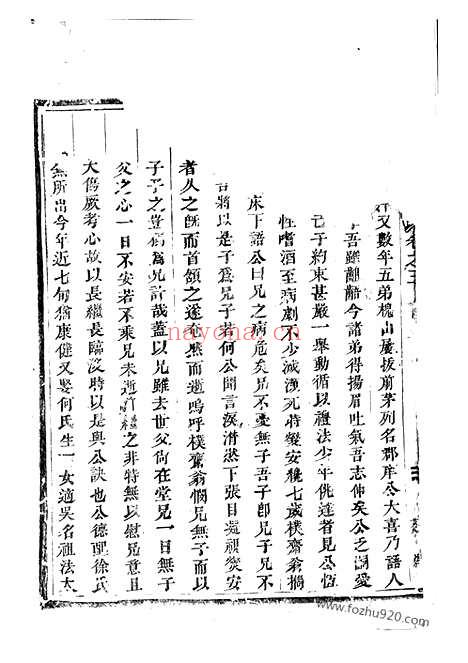 又數年五弟槐山屢拔前茅列名郡庠公大喜乃語人
吾雖齟齬今諸弟得揚眉吐氣吾志伸矣公之謝愛
己子約束甚嚴一舉動循以禮法少年佻達者見公恆
性嗜酒至病劇不少減漢死時燮安纔七歲樸齋翁揣
牀下語公曰兄之病危矣兄不憂無子吾子即兄子兄不
將以是子爲兄子若何公聞言淚潸然下張目凝視燮安
者久之旣而首頷之遂瞑然而逝嗚呼樸齋翁憫兄無子而以
子子之豈獨爲兄計哉蓋以兄雖去世父尚在堂兄一日無子
父之心一日不安若不乘兄未逝之非特無以慰兄意且
大傷嚴考心故以長繼長臨沒時以是與公訣也公德配徐氏
無所出今年近七旬猶康健又娶何氏生一女適吳名祖法太
nayona.cn
www.fozhu920.com